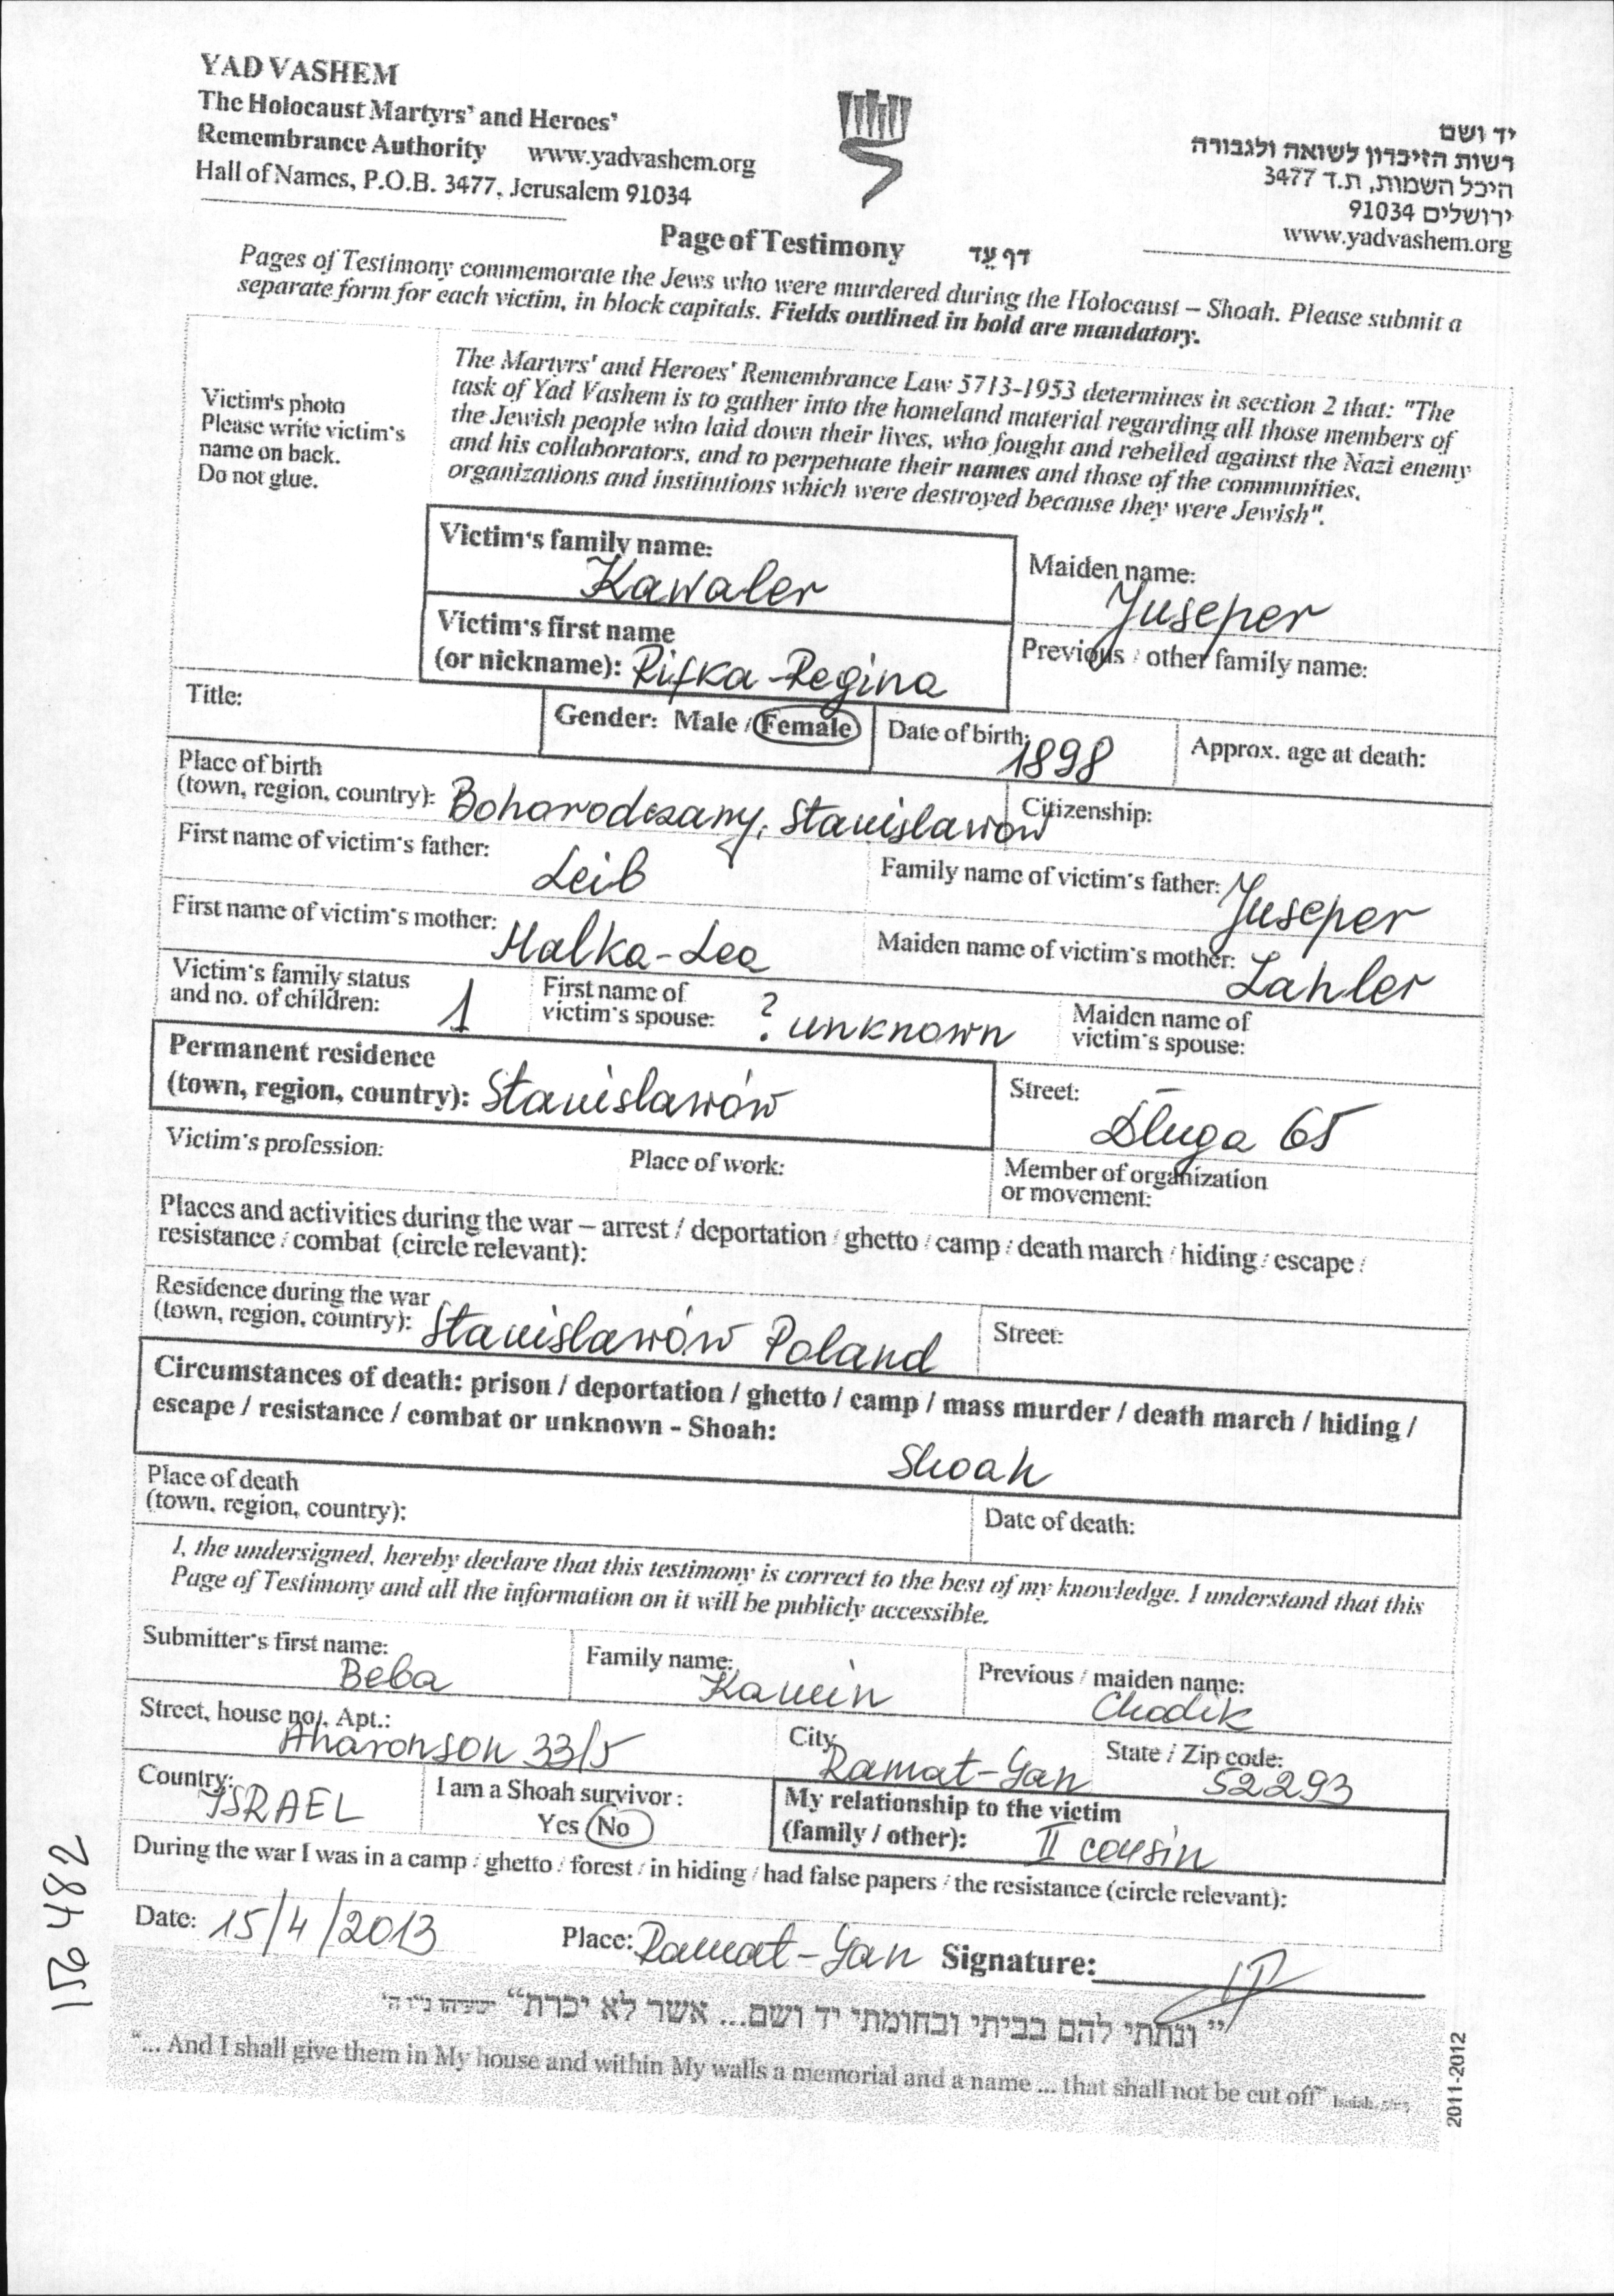 YAD VASHEM
The Holocaust Martyrs' and Heroes'
Remembrance Authority www.yadvashem.org
Hall of Names, P.O.B. 3477, Jerusalem 91034
יד ושם
רשות הזיכרון לשואה ולגבורה
היכל השמות, ת.ד 3477
ירושלים 91034
www.yadvashem.org
Page of Testimony דף עֵד
Pages of Testimony commemorate the Jews who were murdered during the Holocaust – Shoah. Please submit a
separate form for each victim, in block capitals. Fields outlined in bold are mandatory.
Victim's photo
Please write victim's
name on back.
Do not glue.
The Martyrs' and Heroes' Remembrance Law 5713-1953 determines in section 2 that: "The
task of Yad Vashem is to gather into the homeland material regarding all those members of
the Jewish people who laid down their lives, who fought and rebelled against the Nazi enemy
and his collaborators, and to perpetuate their names and those of the communities,
organizations and institutions which were destroyed because they were Jewish".
Victim's family name: Kawaler
Maiden name: Juseper
Victim's first name
(or nickname): Rifka-Regina
Previous / other family name:
Title:
Gender: Male / Female
Date of birth: 1898
Approx. age at death:
Place of birth
(town, region, country): Bohorodczany, Stanislawow
Citizenship:
First name of victim's father: Leib
Family name of victim's father: Juseper
First name of victim's mother: Malka-Lea
Maiden name of victim's mother: Lahler
Victim's family status
and no. of children: 1
First name of
victim's spouse: ? unknown
Maiden name of
victim's spouse:
Permanent residence
(town, region, country): Stanislawów
Street: Dluga 65
Victim's profession:
Place of work:
Member of organization
or movement:
Places and activities during the war – arrest / deportation / ghetto / camp / death march / hiding / escape /
resistance / combat (circle relevant):
Residence during the war
(town, region, country): Stanislawów Poland
Street:
Circumstances of death: prison / deportation / ghetto / camp / mass murder / death march / hiding /
escape / resistance / combat or unknown - Shoah:
Shoah
Place of death
(town, region, country):
Date of death:
I, the undersigned, hereby declare that this testimony is correct to the best of my knowledge. I understand that this
Page of Testimony and all the information on it will be publicly accessible.
Submitter's first name: Beba
Family name: Kamin
Previous / maiden name: Chodik
Street, house no., Apt.: Aharonson 33/5
City Ramat-Gan
State / Zip code: 52293
Country: ISRAEL
I am a Shoah survivor:
Yes No
My relationship to the victim
(family / other): II cousin
During the war I was in a camp / ghetto / forest / in hiding / had false papers / the resistance (circle relevant):
Date: 15/4/2013 Place: Ramat-Gan Signature:
" ונתתי להם בביתי ובחומתי יד ושם... אשר לא יכרת" ישעיהו נ"ו ה'
"... And I shall give them in My house and within My walls a memorial and a name ... that shall not be cut off" Isaiah
156482
2011-2012